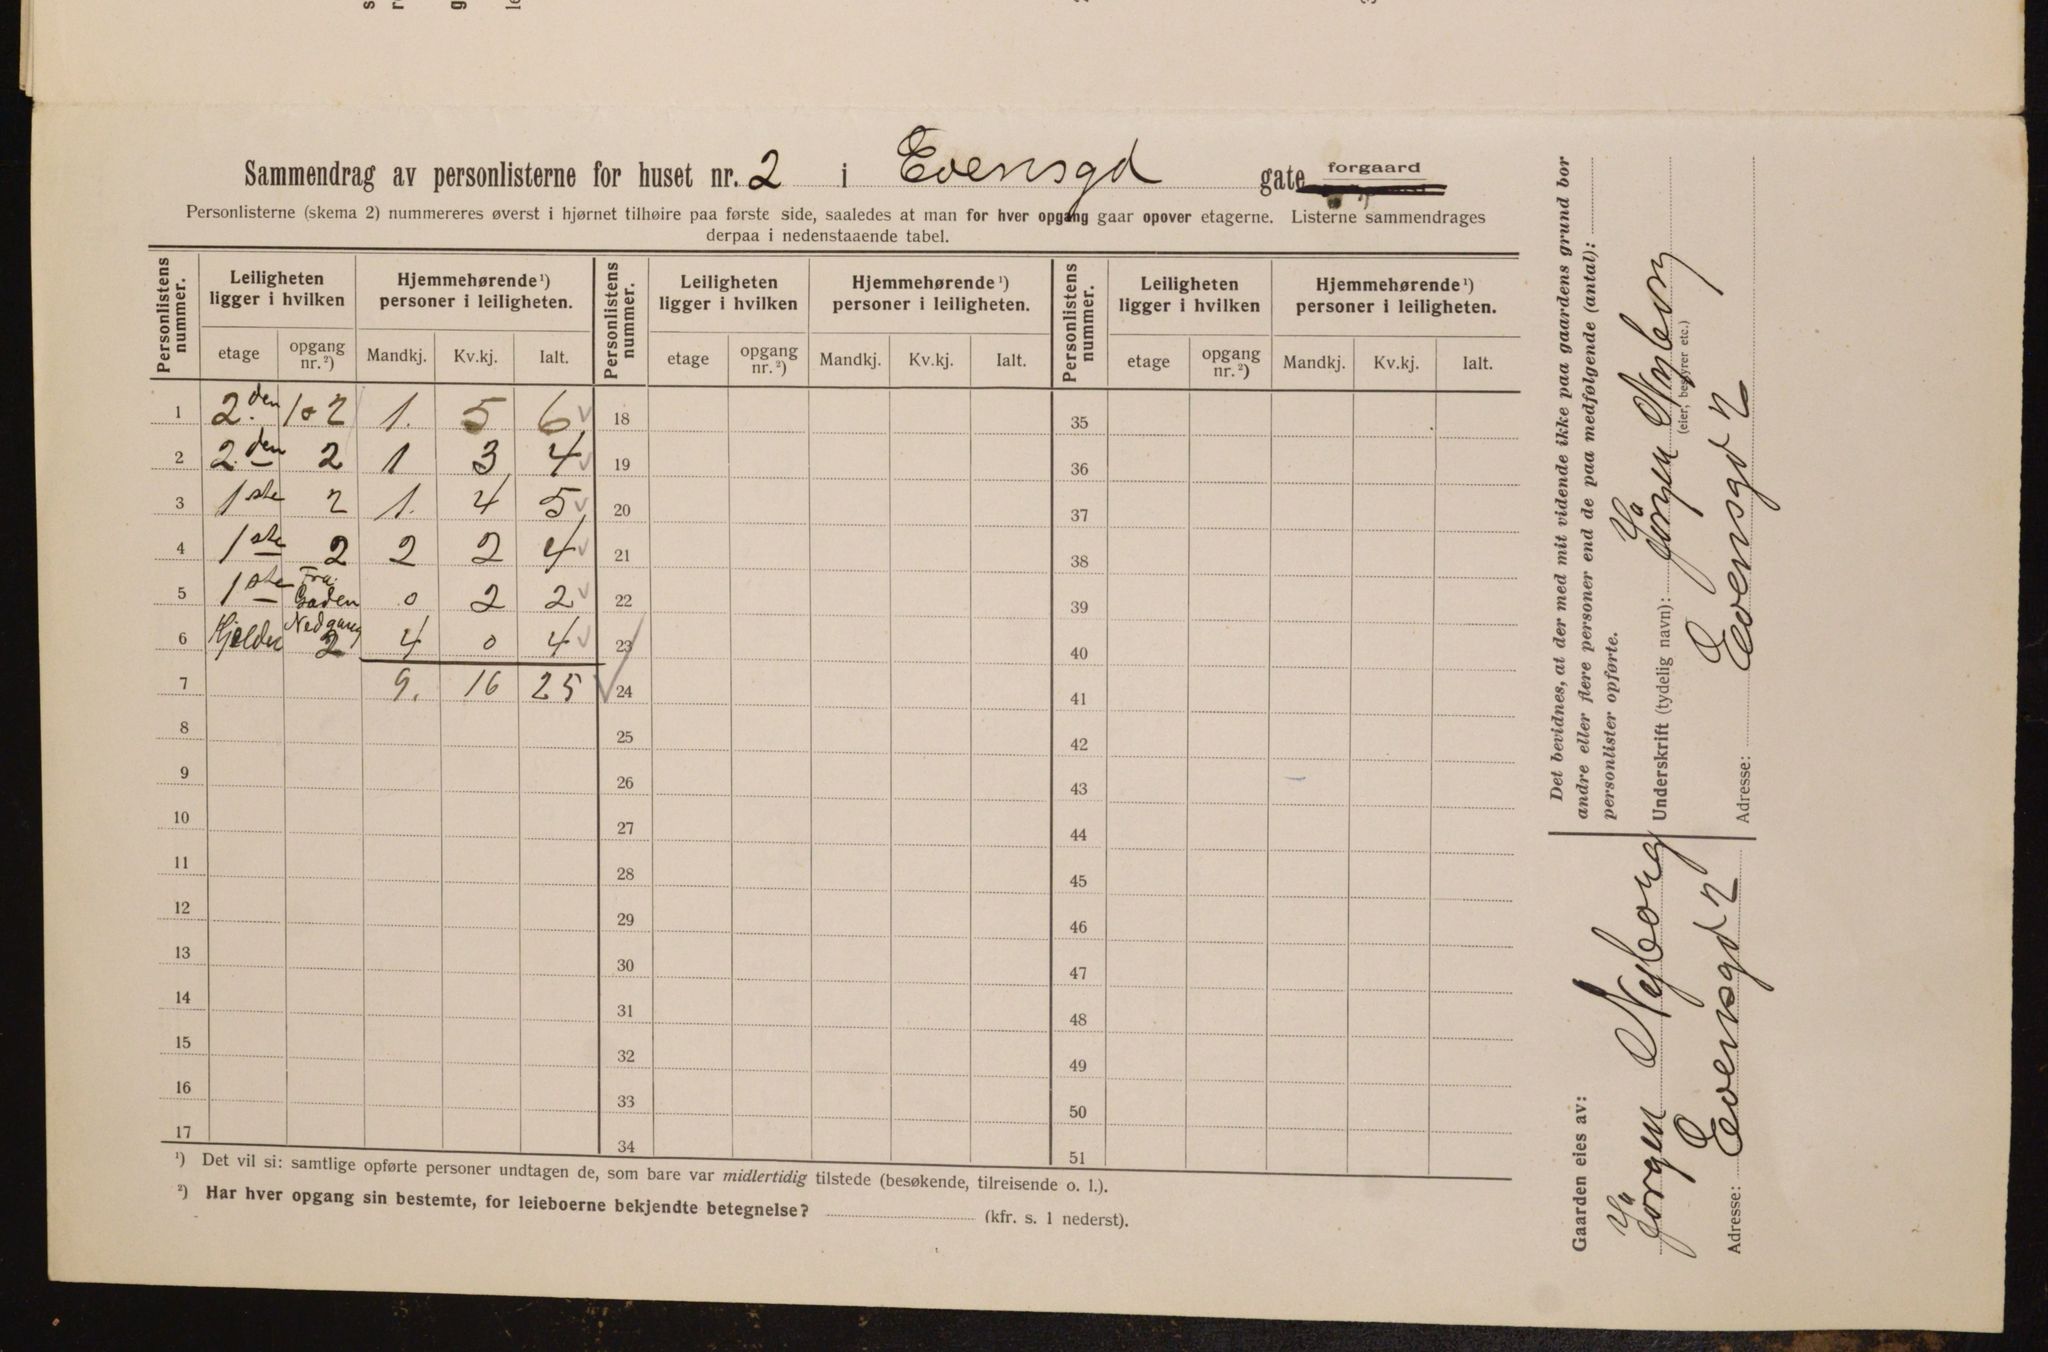 Sammendrag av personlisterne for huset nr. 2 i Evensgd gate forgaard
Personlisterne (skema 2) nummereres øverst i hjørnet tilhøire paa første side, saaledes at man for hver opgang gaar opover etagerne. Listerne sammendrages
derpaa i nedenstaaende tabel.
Personlistens nummer. Leiligheten ligger i hvilken Hjemmehørende ¹) personer i leiligheten. Personlistens nummer. Leiligheten ligger i hvilken Hjemmehørende ¹) personer i leiligheten. Personlistens nummer. Leiligheten ligger i hvilken Hjemmehørende ¹) personer i leiligheten.
etage opgang nr. ²) Mandkj. Kv.kj. Ialt. etage opgang nr. ²) Mandkj. Kv.kj. Ialt. etage opgang nr. ²) Mandkj. Kv.kj. Ialt.
1 2.den 1o2 1. 5 6 18 35
2 2.den 2 1 3 4 19 36
3 1ste 2 1. 4 5 20 37
4 1ste 2 2 2 4 21 38
5 1ste Fra Gaden 0 2 2 22 39
6 Kjelder Nedgang 2 4 0 4 23 40
7 9. 16 25 24 41
8 25 42
9 26 43
10 27 44
11 28 45
12 29 46
13 30 47
14 31 48
15 32 49
16 33 50
17 34 51
¹) Det vil si: samtlige opførte personer undtagen de, som bare var midlertidig tilstede (besøkende, tilreisende o. l.).
²) Har hver opgang sin bestemte, for leieboerne bekjendte betegnelse? (kfr. s. 1 nederst).
Det bevidnes, at der med mit vidende ikke paa gaardens grund bor
andre eller flere personer end de paa medfølgende (antal):
personlister opførte.
Underskrift (tydelig navn): Jörgen Nyborg
(eier, bestyrer etc.)
Adresse: Evensgd 2
Gaarden eies av:
Jörgen Nyborg
Adresse: Evensgd 2